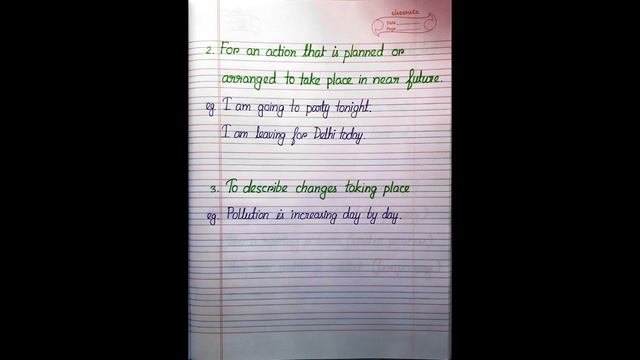 classmate
Date
Page
2. For an action that is planned or
arranged to take place in near future.
eg I am going to party tonight.
I am leaving for Delhi today.
3. To describe changes taking place
eg. Pollution is increasing day by day.